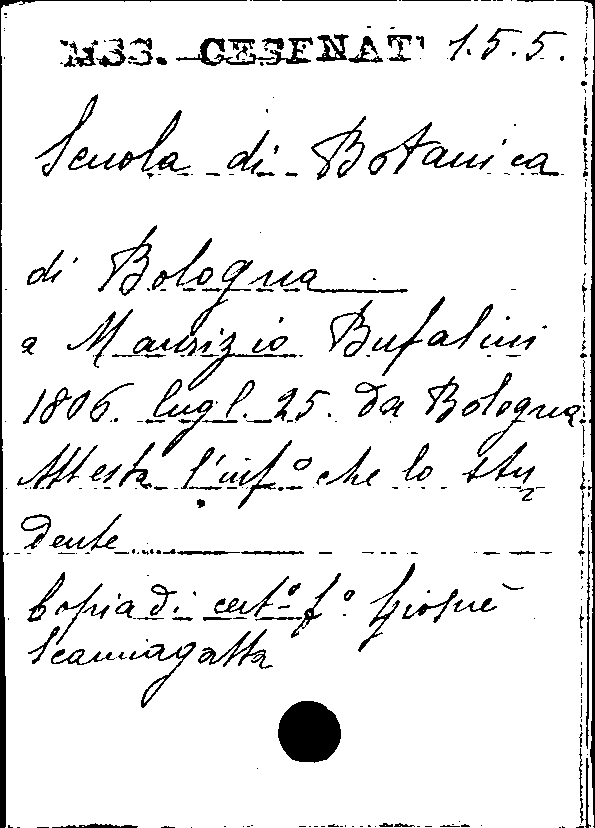 MSS. CESENAT 1.5.5.
Scuola di Botanica
di Bologna
a Maurizio Bufalini
1806. lugl. 25. Da Bologna
Attesta l'inf.º che lo stu
dente
Copia di cert.º f.º Giosuè
Scannagatta